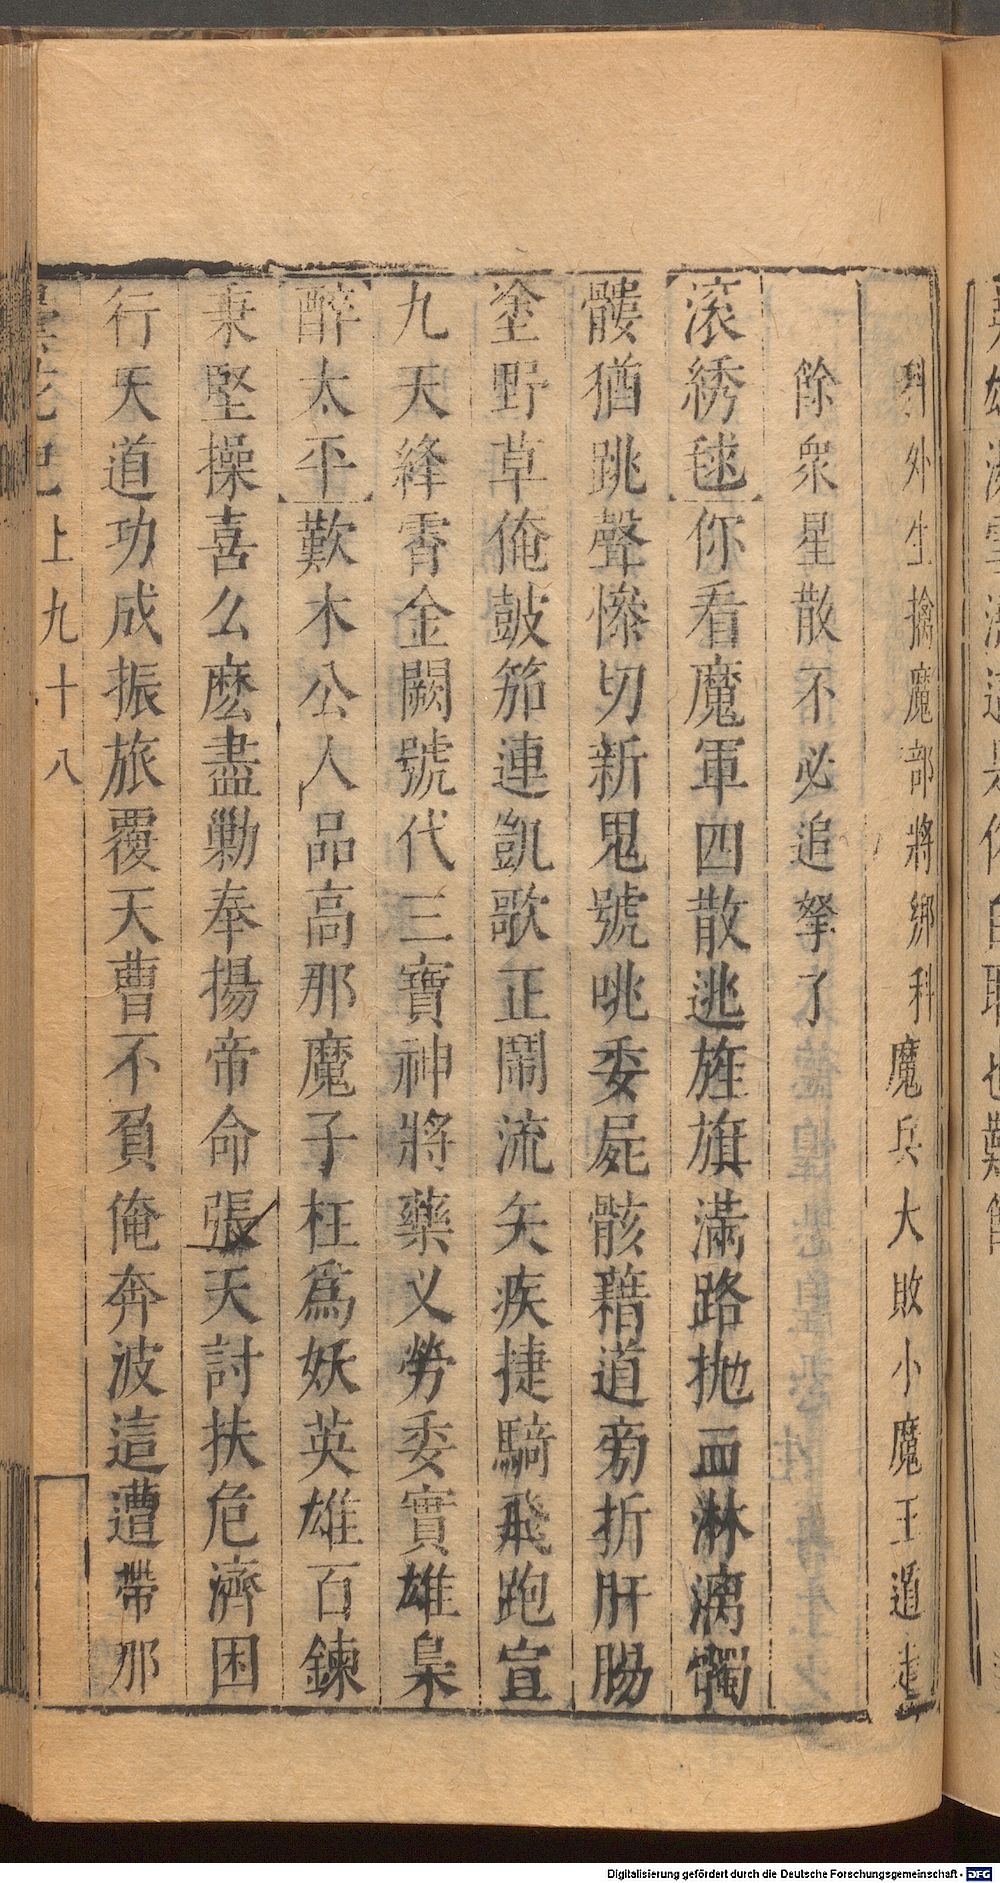 科外生擒魔部將綁科魔兵大敗小魔王遁走
餘衆星散不必追拏了
滚綉毬你看魔軍四散逃旌旗滿路抛血淋漓髑
髏猶跳聲慘切新鬼號咷委屍骸藉道旁折肝腸
塗野草俺鼓笳連凱歌正鬧流矢疾捷騎飛跑宣
九天絳霄金闕號代三寶神將藥乂勞委實雄梟
醉太平歎木公人品高那魔子枉爲妖英雄百鍊
秉堅操喜么麽盡勦奉揚帝命張天討扶危濟困
行天道功成振旅覆天曹不負俺奔波這遭帶那
曇花記 上 九十八
Digitalisierung gefördert durch die Deutsche Forschungsgemeinschaft - DFG